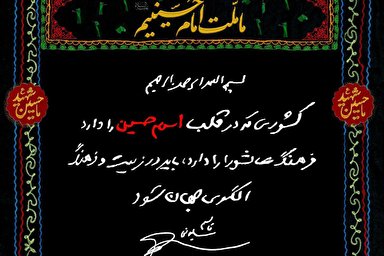 ما ملت امام حسینیم
بسم الله الرحمن الرحیم
کشوری که در قلب اسم حسین را دارد
فرهنگ عاشورا را دارد، باید در تربیت و فرهنگ
الگوی جهان شود
حسین شهید
حسین شهید